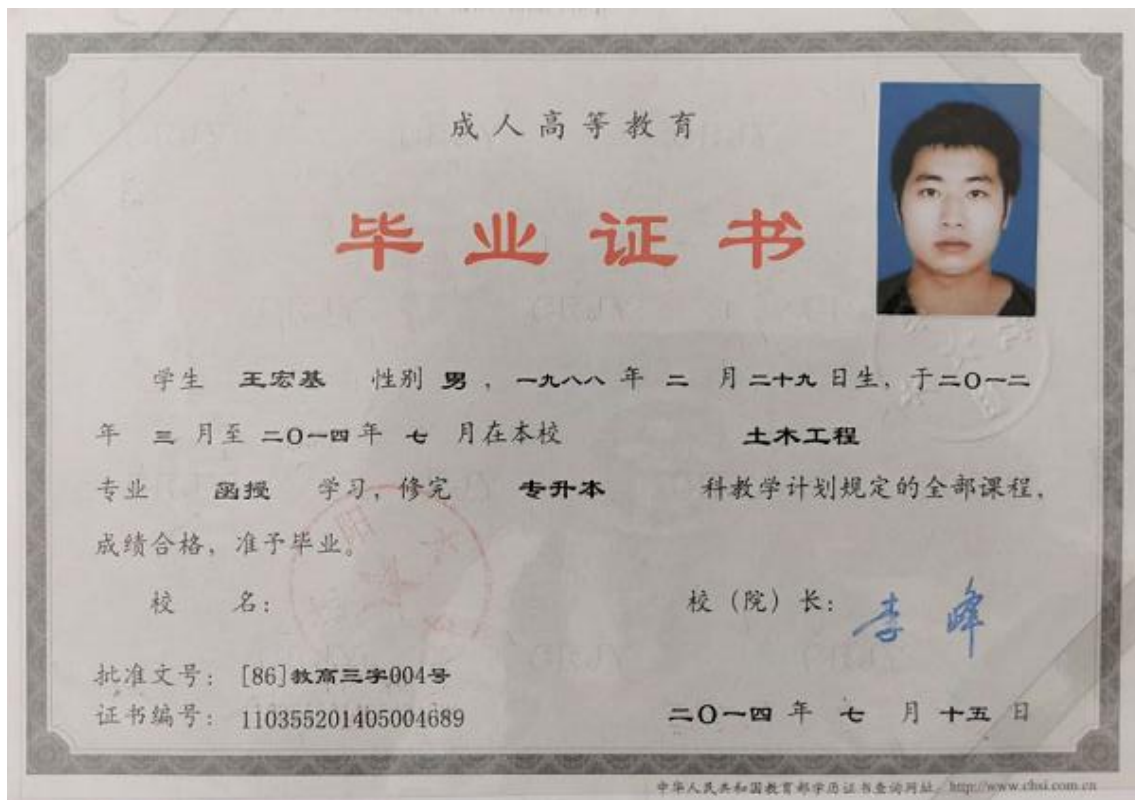 成人高等教育
毕业证书
学生 王宏基 性别 男，一九八八 年 二 月 二十九 日生，于二〇一二
年 三 月至 二〇一四 年 七 月在本校 土木工程
专业 函授 学习，修完 专升本 科教学计划规定的全部课程，
成绩合格，准予毕业。
校 名： 校（院）长： 李峰
批准文号： [86]教高三字004号
证书编号： 110355201405004689 二〇一四 年 七 月 十五 日
中华人民共和国教育部学历证书查询网址：http://www.chsi.com.cn